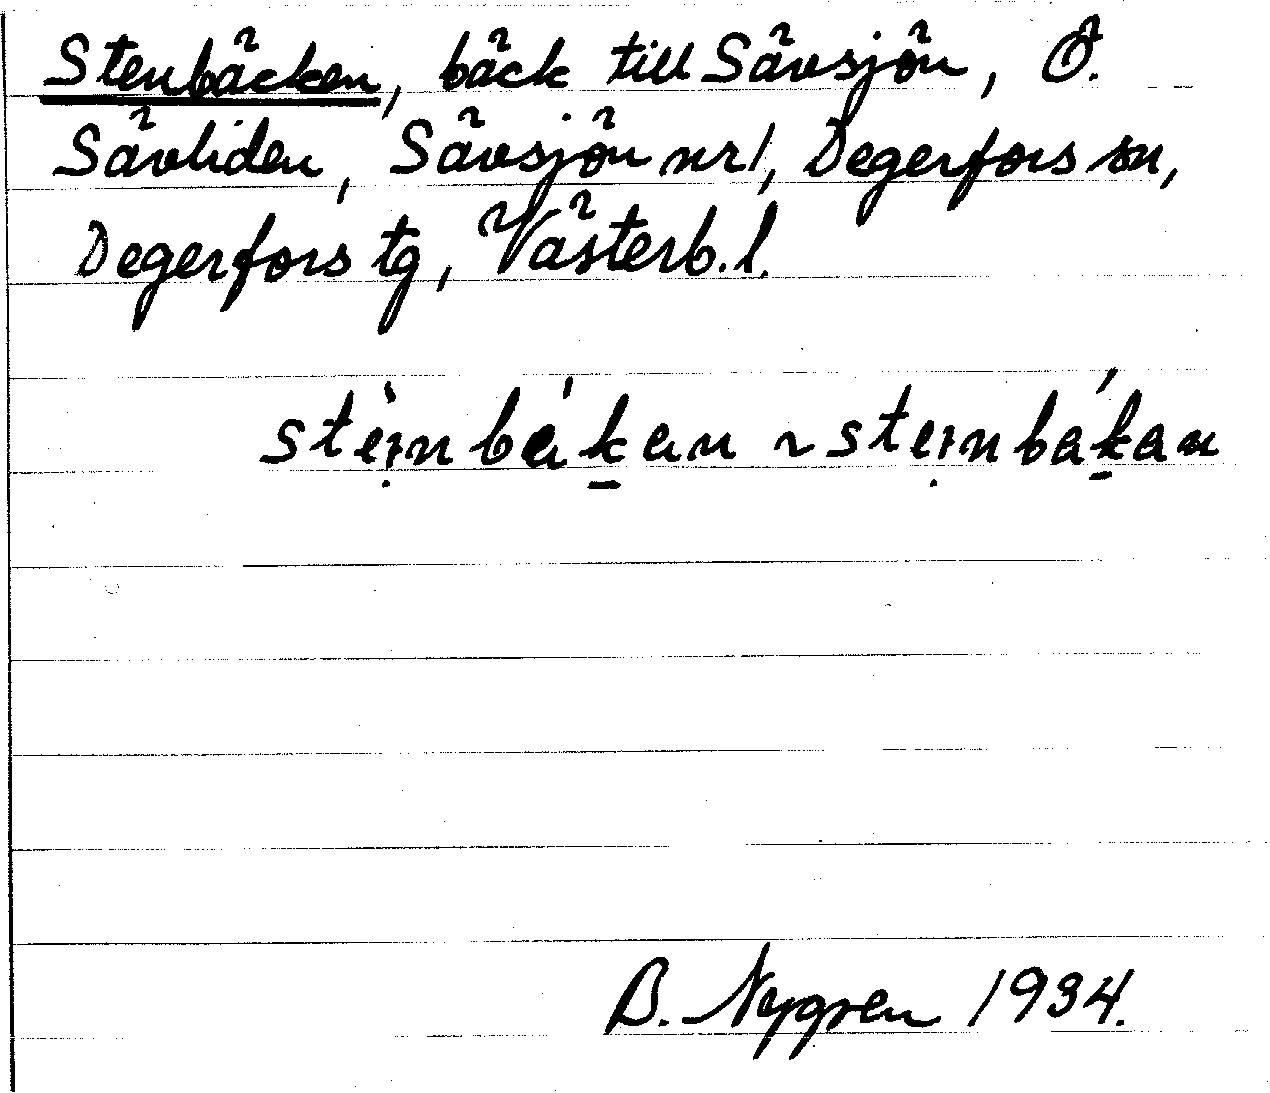 Stenbäcken, bäck till Sävsjön, Ö.
Sävliden, Sävsjön nr 1, Degerfors sn,
Degerfors tg, Västerb. l.
steinbäkan ~ steinbakan
B. Nygren 1934.